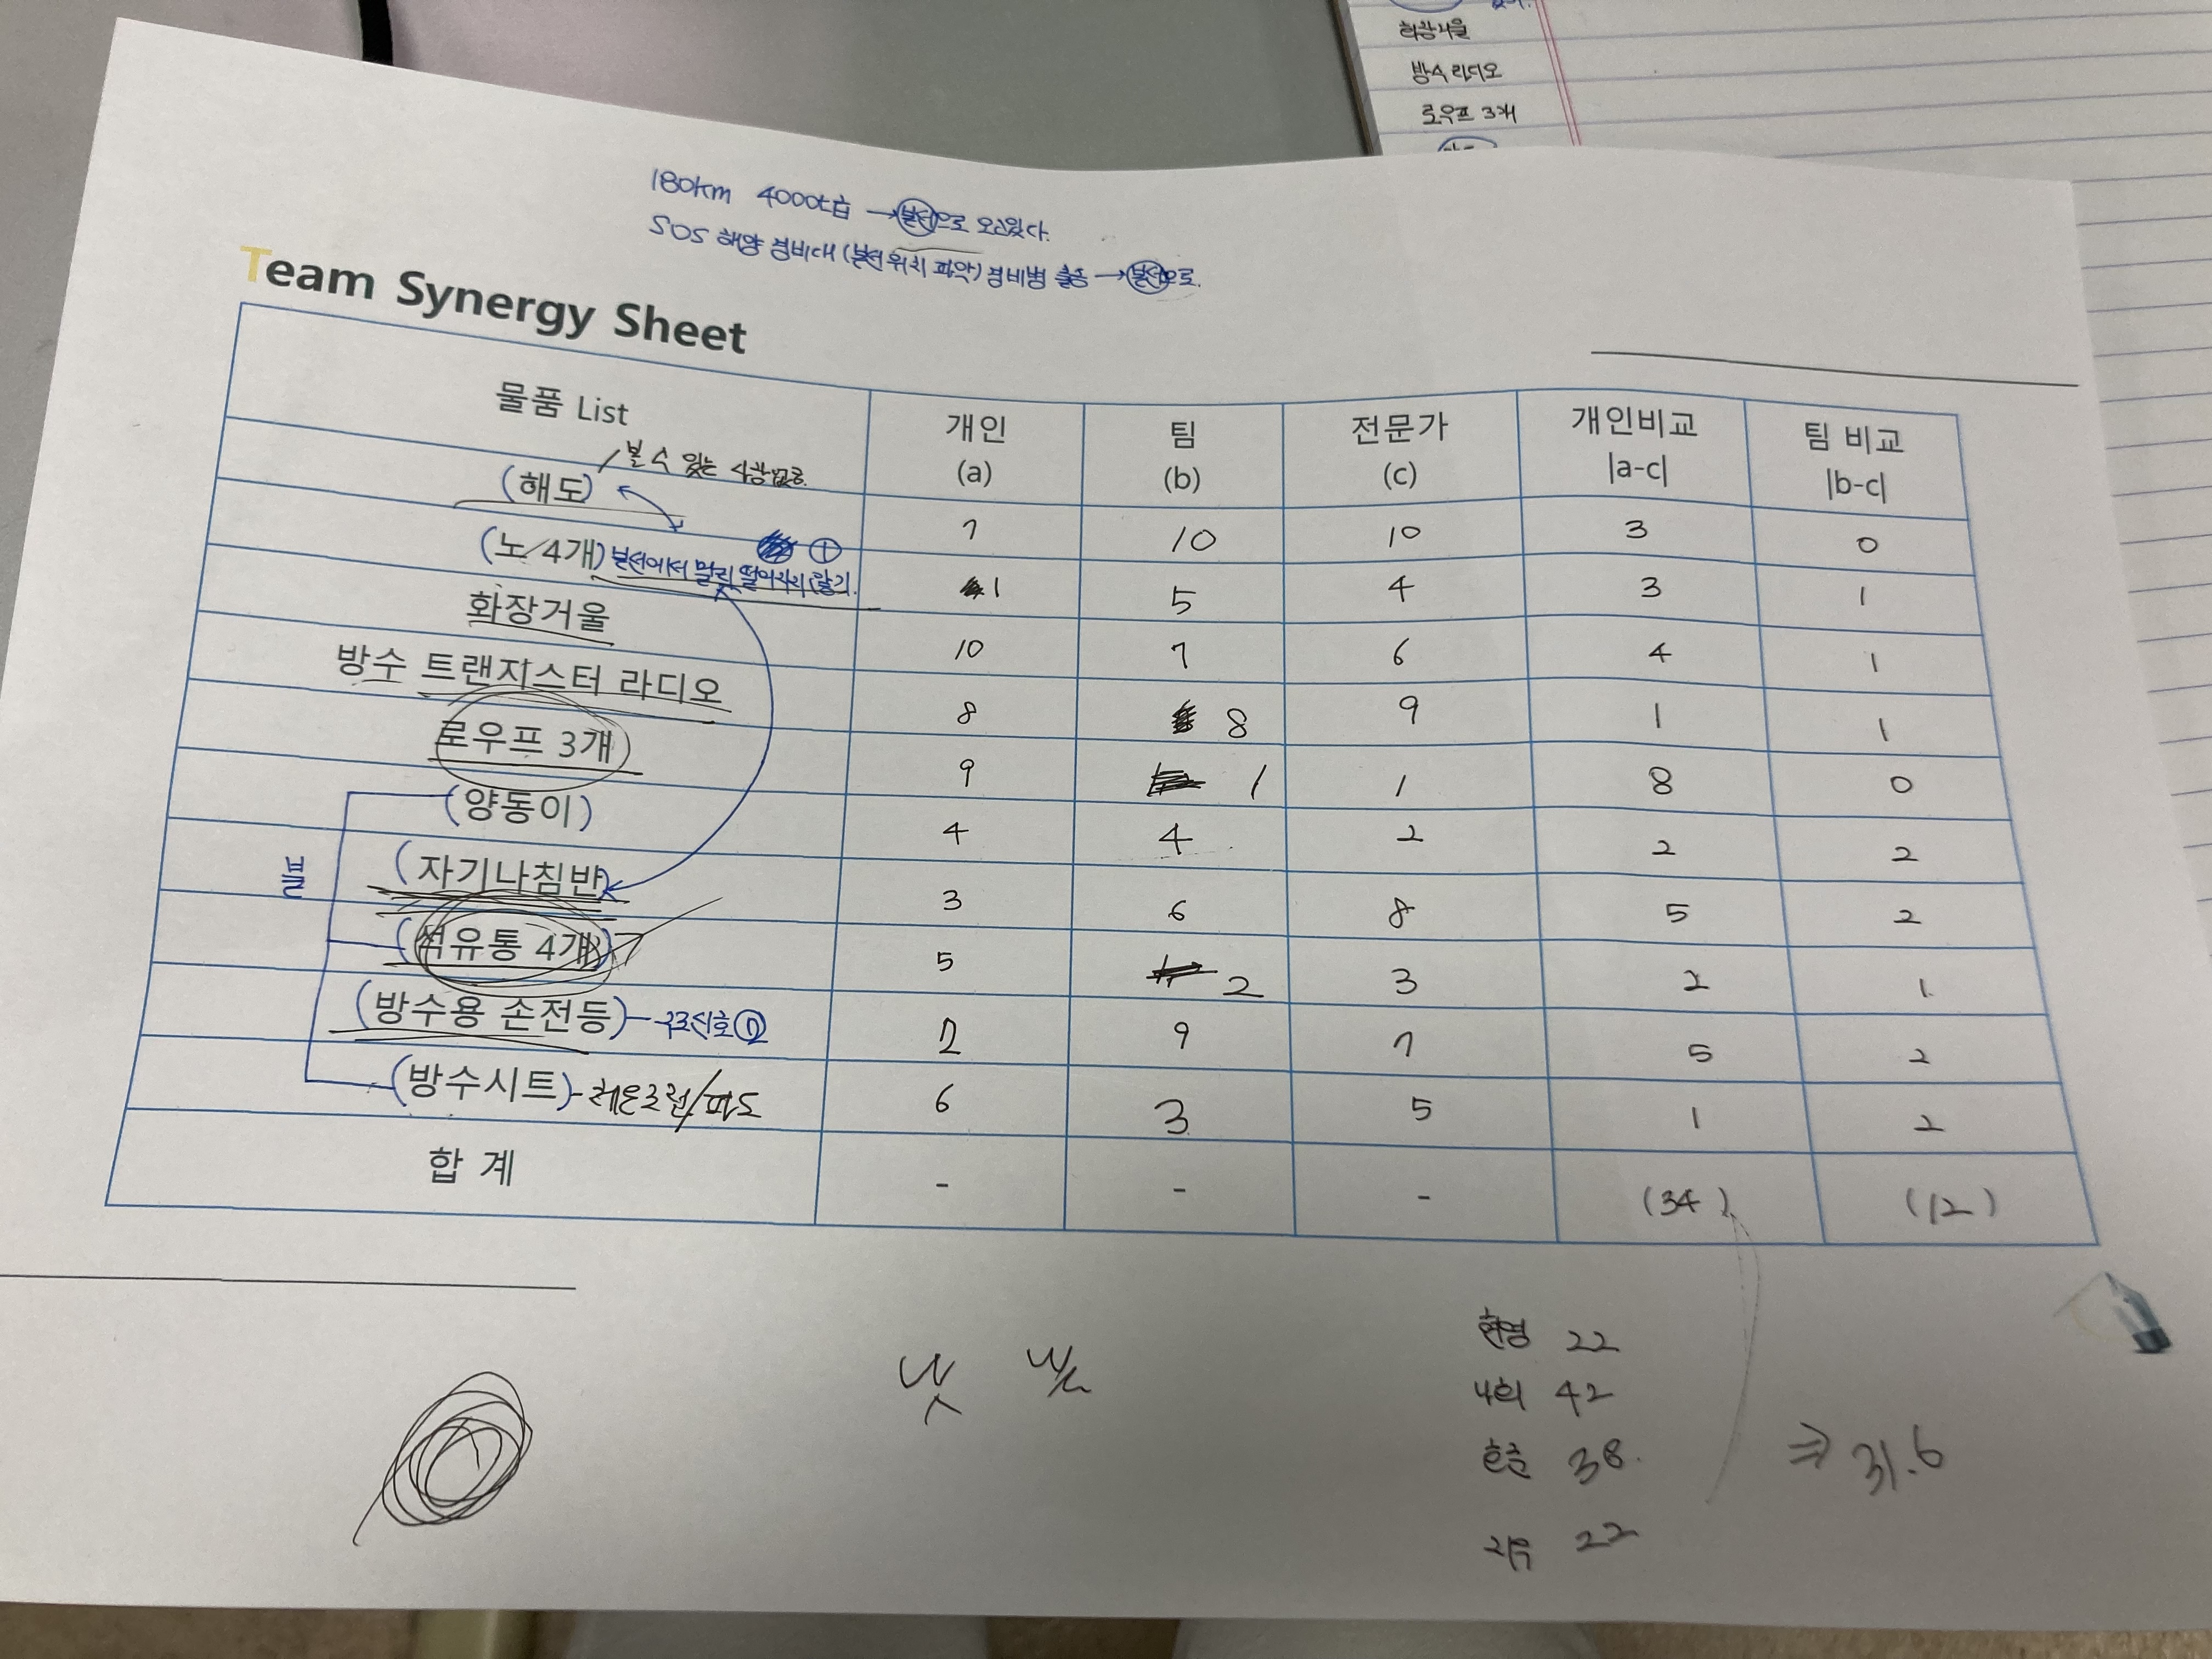 화장거울
방수 라디오
로우프 3개
180km 4000t급 → 본선으로 오고있다.
SOS 해양 경비대 (본선 위치 파악) 경비병 출동 → 본선으로.
Team Synergy Sheet
물품 List 개인 (a) 팀 (b) 전문가 (c) 개인비교 |a-c| 팀 비교 |b-c|
볼 수 있는 사람 없음
(해도) 7 10 10 3 0
(노 4개) 본선에서 멀리 떨어지지 않기 ① 1 5 4 3 1
화장거울 10 7 6 4 1
방수 트랜지스터 라디오 8 8 9 1 1
로우프 3개 9 1 1 8 0
(양동이) 4 4 2 2 2
(자기나침반) 3 6 8 5 2
(석유통 4개) 5 2 3 2 1
(방수용 손전등) - 구조신호 ② 2 9 7 5 2
(방수시트) - 체온조절/파도 6 3 5 1 2
합 계 - - - (34) (12)
22
42
38.
⇒ 31.6
22